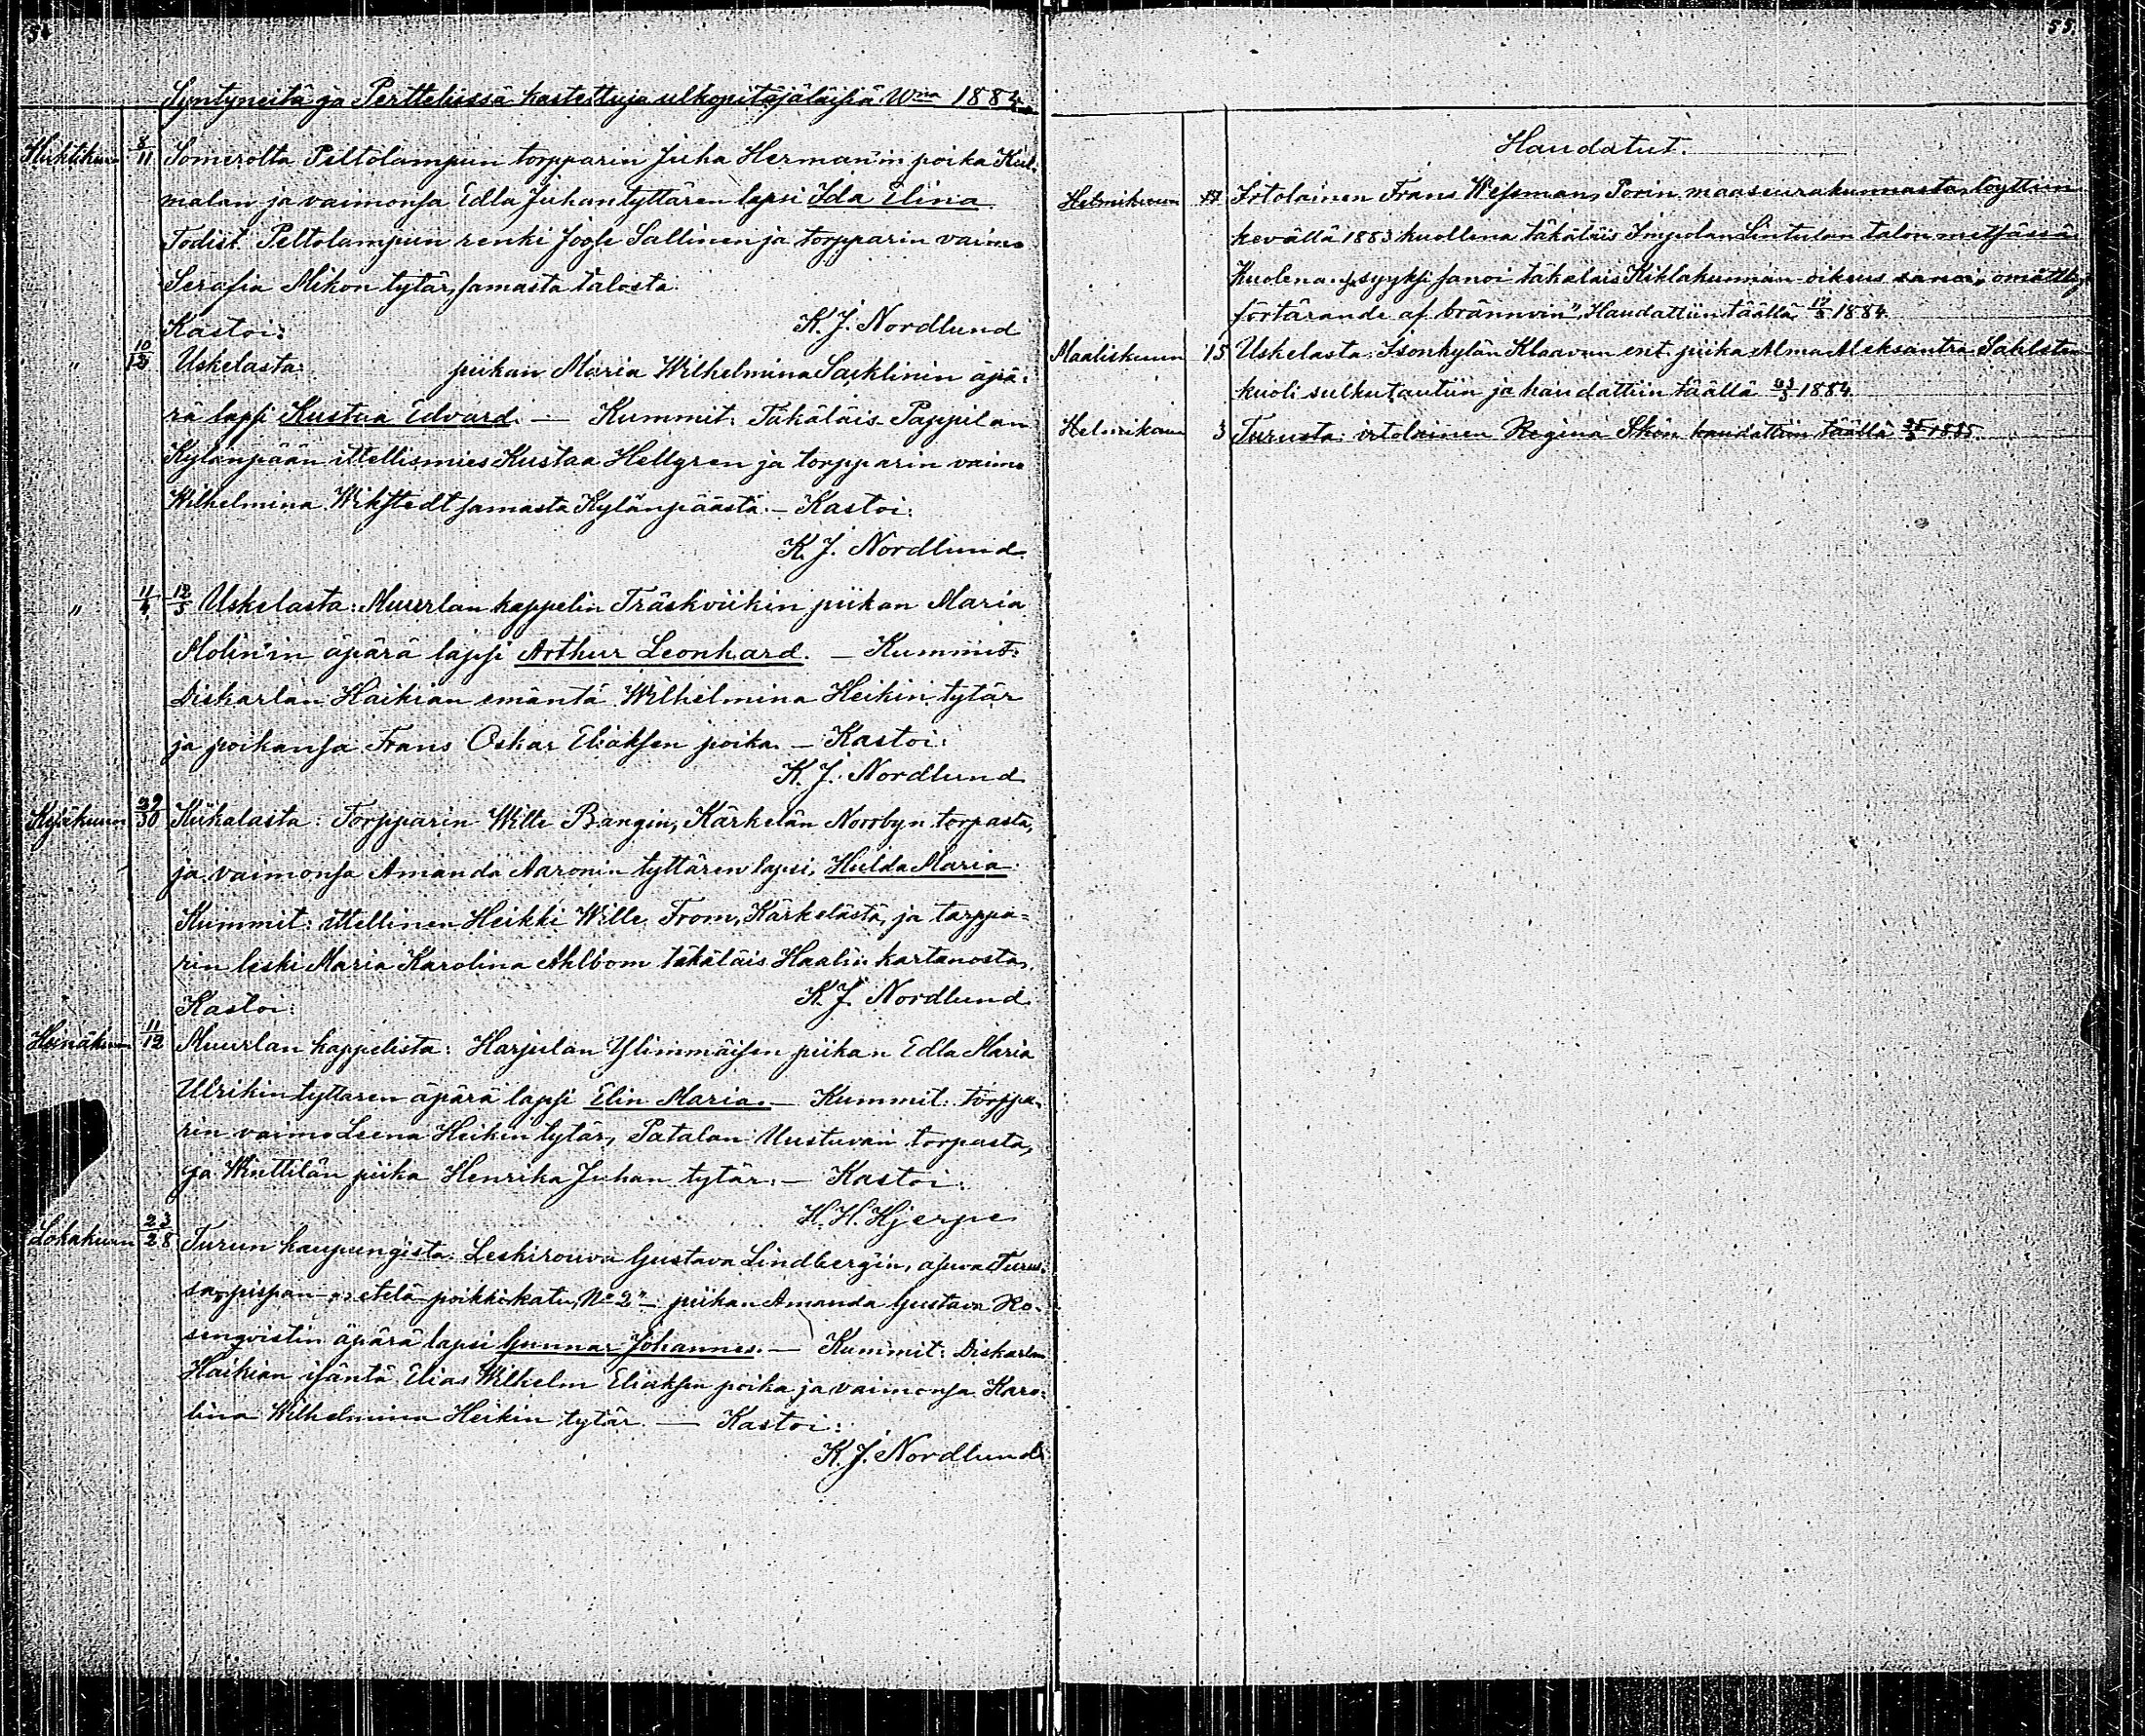 54
Syntyneitä ja Perttelissä kastettuja ulkopitäjäläisiä Wna 1884
Huhtikuun 8/11 Somerolta Peltolampun torpparin Juha Hermannin poika Kul-
malan ja vaimonsa Edla Juhantyttären lapsi Ida Elina.
Todist. Peltolampun renki Joose Sallinen ja torpparin vaimo
Serafia Mikon tytär, samasta talosta.
Kastoi: K. J. Nordlund
" 10/12 Uskelasta: piikan Maria Wilhelmina Sacklinin äpä-
rä lapsi Kustaa Edvard. — Kummit: Täkäläis Pappilan
Kylänpään ittellismies Kustaa Hellgren ja torpparin vaimo
Wilhelmina Wikstedt samasta Kylänpäästä. — Kastoi:
K. J. Nordlund
" 11/4 12/5 Uskelasta: Muurlan kappelin Träskviikin piikan Maria
Molin'in äpärä lapsi Arthur Leonhard. — Kummit:
Diskarlan Haikian emäntä Wilhelmina Heikin tytär
ja poikansa Frans Oskar Eliaksen poika. — Kastoi:
K. J. Nordlund
Kesäkuun 29/30 Kiikalasta: Torpparin Wille Bangin, Kärkelän Norrbyn torpasta,
ja vaimonsa Amanda Aaronin tyttären lapsi, Hulda Maria.
Kummit: ittellinen Heikki Wille From, Kärkelästä, ja torppa=
rin leski Maria Karolina Ahlbom täkäläis Haalin kartanosta.
Kastoi: K. J. Nordlund.
Heinäkuun 11/12 Muurlan kappelista: Harjulan Ylimmäisen piikan Edla Maria
Ulrikin tyttären äpärä lapsi Elin Maria. — Kummit: torppa-
rin vaimo Leena Heikin tytär, Patalan Uustuvan torpasta,
ja Wuttilän piika Henrika Juhan tytär. — Kastoi:
K. H. Hjerpe
Lokakuun 23/28 Turun kaupungista: Leskirouva Gustava Lindbergin, asuva Turus-
sa, etelä poikkikatu, No 2" — piikan Amanda Gustava Ro-
senqvistin äpärä lapsi Gunnar Johannes. — Kummit: Diskarlan
Haikian isäntä Elias Wilhelm Eliaksen poika ja vaimonsa Karo-
lina Wilhelmina Heikin tytär. — Kastoi:
K. J. Nordlund
55.
Haudatut.
Helmikuun 17 Irtolainen Frans Wessman, Porin maaseurakunnasta, löyttiin
kevällä 1883 kuollena täkäläis Inpolan Lintulan talon metsässä.
Kuoleman syyksi sanoi täkäläis Kihlakunnan oikeus sanoi, omåttligt
förtärande af brännvin", Haudattiin täällä 1884.
Maaliskuun 15 Uskelasta: Isonkylän Klaavun ent. piika Alma Aleksantra Sahlsten
kuoli sulkutautiin ja haudattiin täällä 23/3 1884.
Helmikuun 3 Turusta: irtolainen Regina Skön haudattiin täällä 1885.